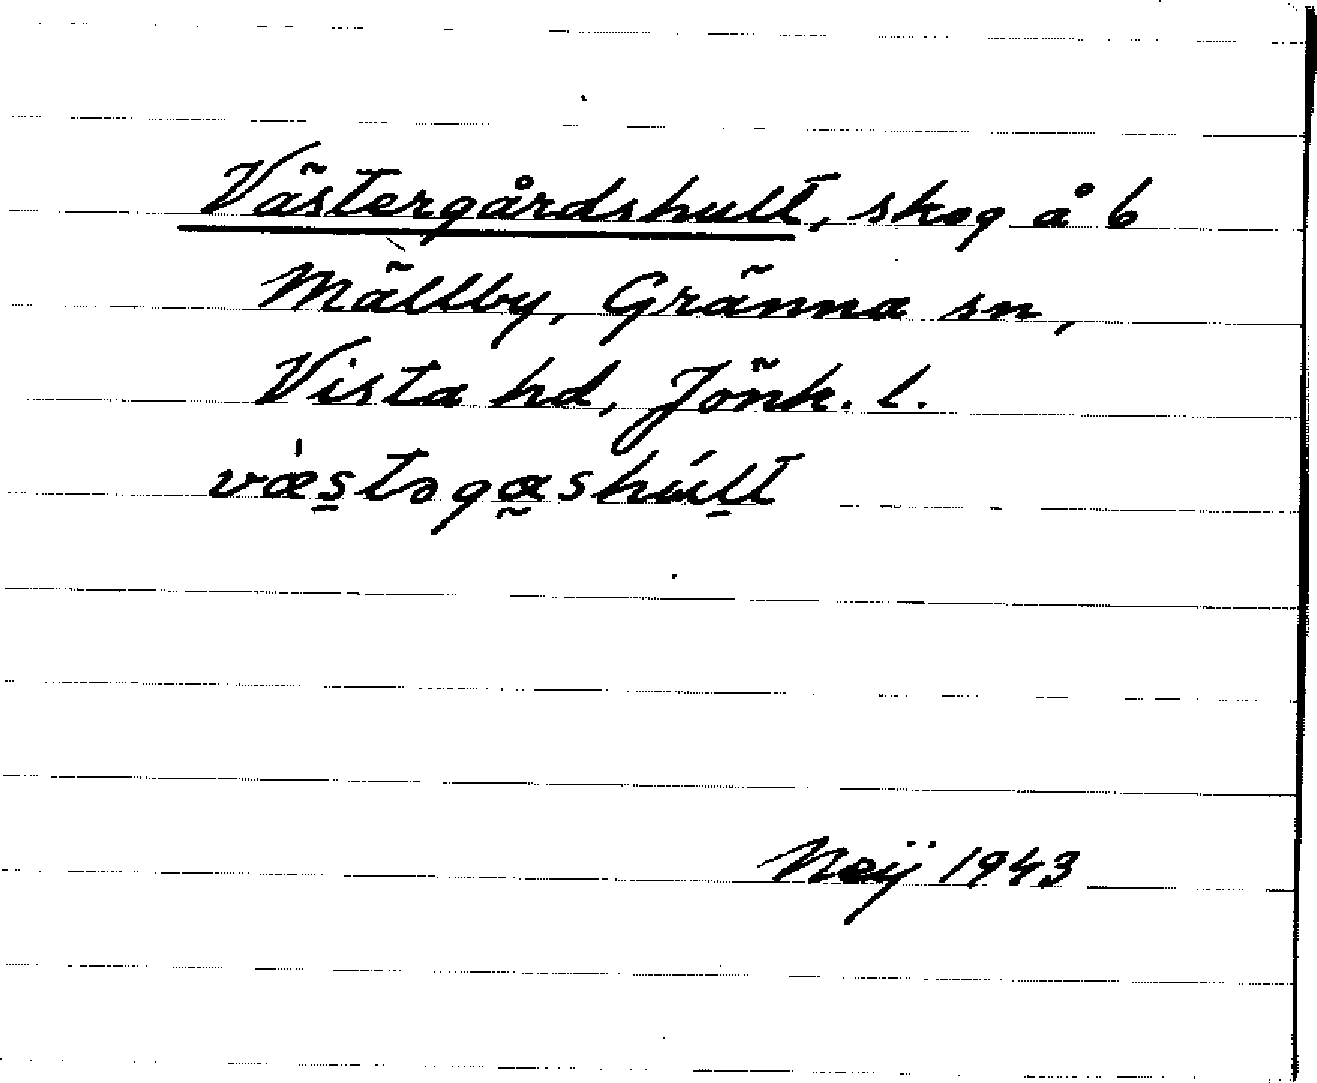 Västergårdshult, skog å 6
Mällby, Gränna sn,
Vista hd, Jönk. l.
væ̀s̱tɔgɑ̰shúḻt
Neÿ 1943